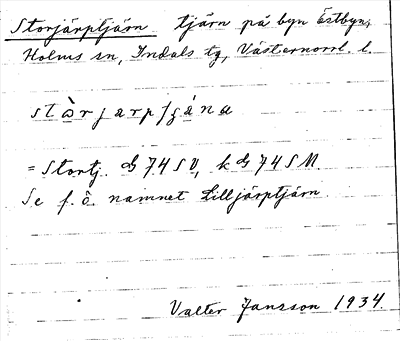 Storjärptjärn tjärn på byn Östbyn,
Holms sn, Indals tg, Västernorrl. l.
stàrjarpʃʒána
= Stortj. G 74 SV, k G 74 SM.
Se f. ö. namnet Lilljärptjärn.
Valter Jansson 1934.